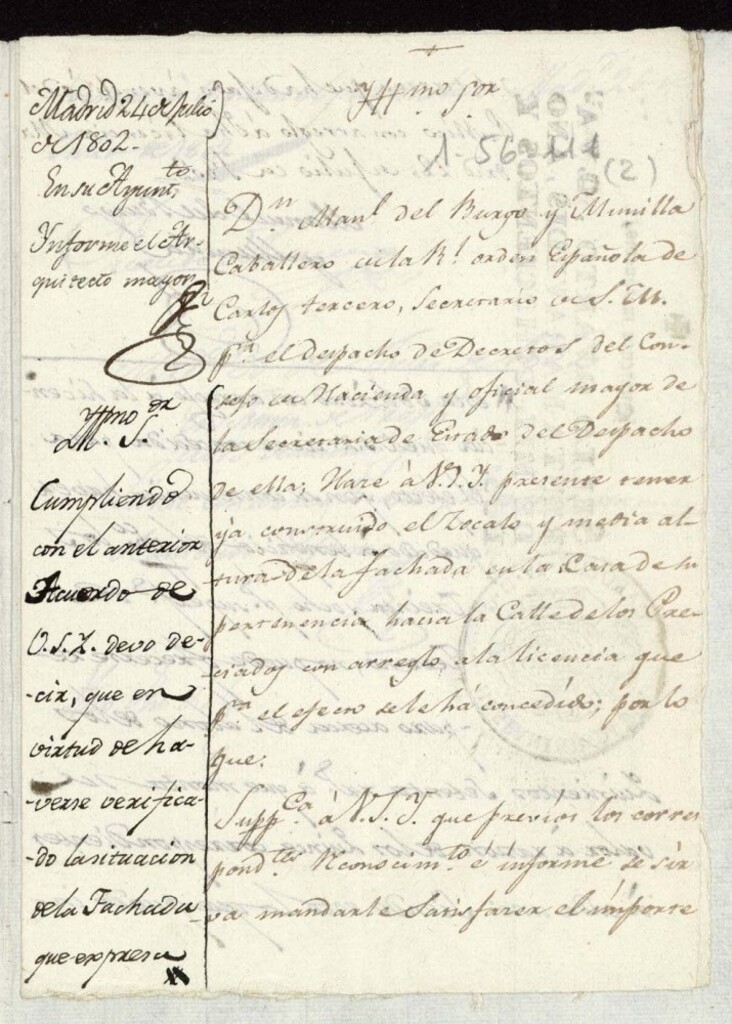 Madrid 24 de Julio
de 1802.
En su Ayunt.to
Informe el Ar-
quitecto mayor
Yllmo Sor
M. S.
Cumpliendo
con el anterior
Acuerdo de
V.S.I. devo de-
cir, que en
virtud de ha-
verse verifica-
do la situacion
de la Fachada
que expresa
Yllmo Sor
1-56-111
(2)
Dn. Manl. del Burgo y Munilla
Caballero de la Rl. orden Española de
Carlos tercero, Secretario de S. M.
pra. el despacho de Decretos del Con-
sejo de Hacienda y oficial mayor de
la Secretaria de Estado del Despacho
de ella; Hace à V.S.Y. presente tener
ya construido el Zocalo y media al-
tura de la fachada en la Casa de su
pertenencia hacia la Calle de los Pre-
ciados con arreglo a la licencia que
pra. el efecto se le há concedido; por lo
que:
Suppca. à V.S.Y. que previos los corres
pondtes. Reconocimto. è informe se sir
va mandarle satisfacer el importe